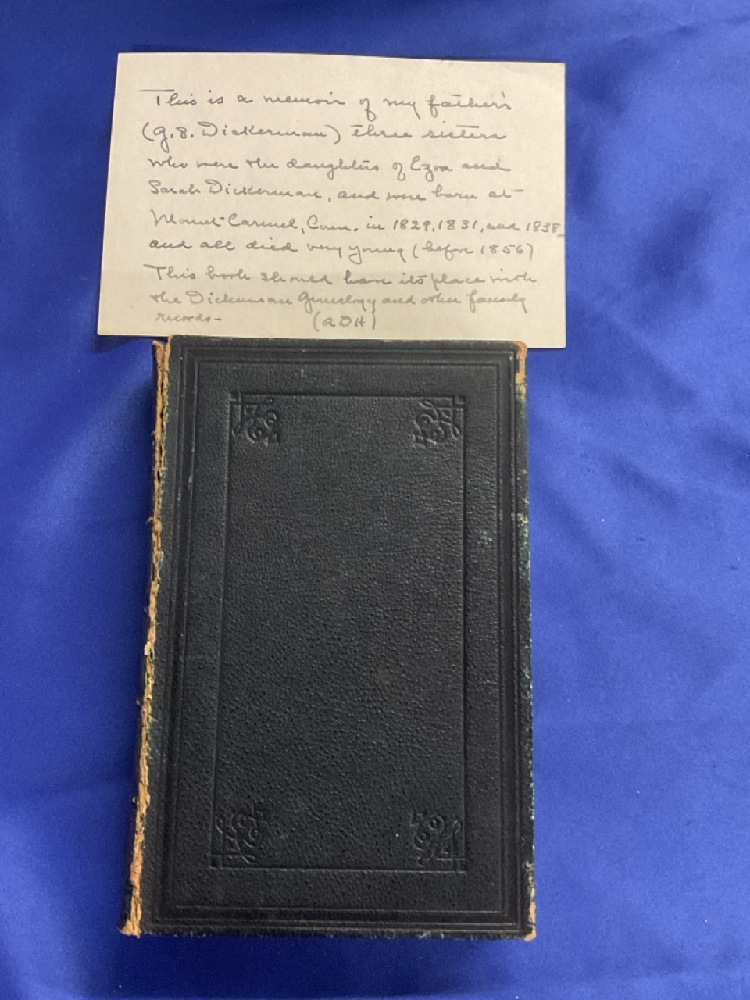 This is a memoir of my father's
(G.S. Dickerman) three sisters
who were the daughters of Ezra and
Sarah Dickerman, and were born at
Mount Carmel, Conn. in 1829, 1831, and 1838
and all died very young (before 1856)
This book should have its place with
the Dickerman Genealogy and other family
records—
(EDH)